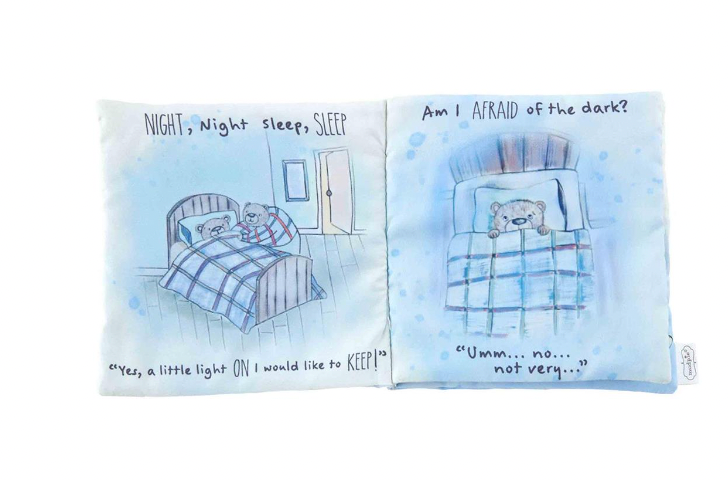 NIGHT, Night sleep, SLEEP
"Yes, a little light ON I would like to KEEP!"
Am I AFRAID of the dark?
"Umm... no...
not very..."